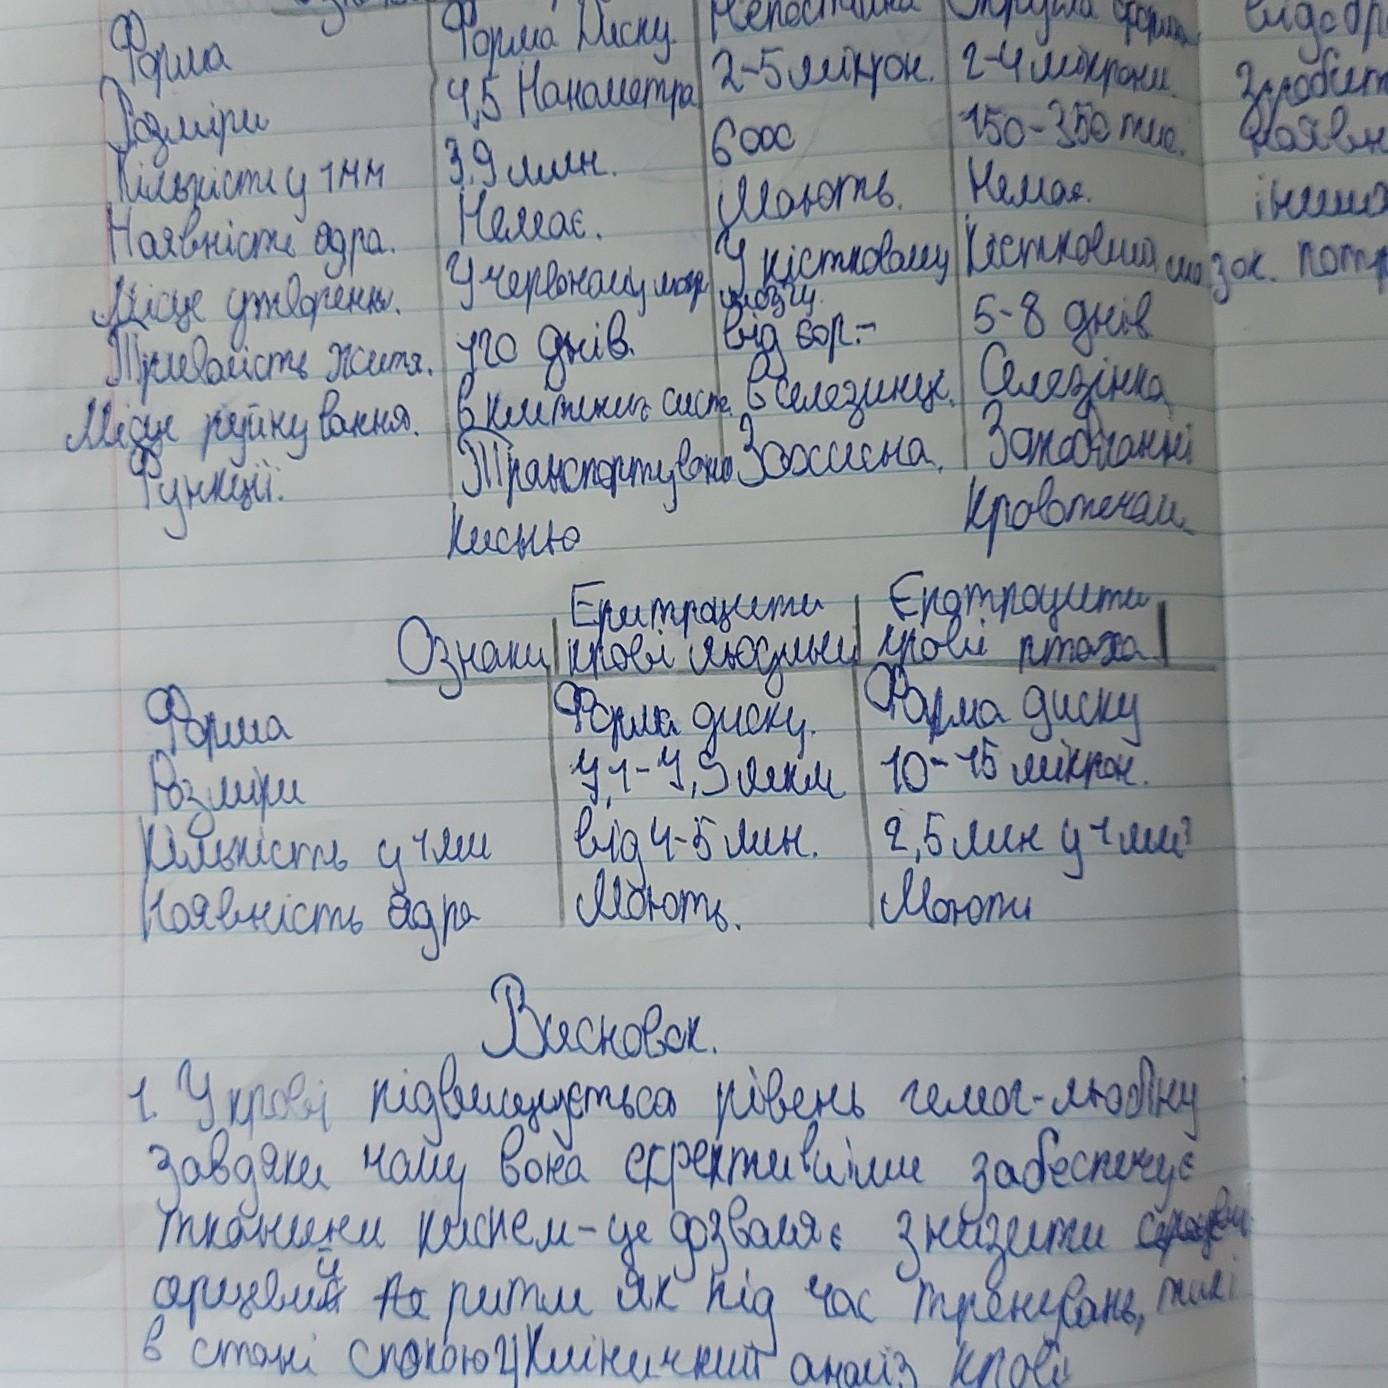 Форма Форма Диску Непостійна Округла форма
Розміри 7,5 Нанометра 2-5 мікрон. 2-4 мікрони.
Кількість у 1мм 3,9 млн. 6000 150-350 тис.
Наявність ядра. Немає. Мають. Немає.
Місце утворення. У червоному У кістковому Кістковий мозок.
мозгу.
Тривалість життя. 120 днів. від 5-8 днів
Місце руйнування. В клітиних сист. в селезинце. Селезінка
Функції. Транспортування Захисна. Запобігання
кисню кровотечам
Еритроцити Еротроцити
Ознаки крові людини крові птаха
Форма Форма диску. Форма диску
Розміри 7,1-7,9 мкм 10-15 мікрон.
Кількість у 1мм від 4-5 млн. 2,5 млн у 1мм³
Наявність ядра Мають. Мають
Висновок.
1. У крові підвищується рівень гемог-любіну
завдяки чому вона ефективніше забеспечує
тканини киснем-це дозваляє знизити
ритм як під час тренувань, так і
в стані спокою Клінічний аналіз крові